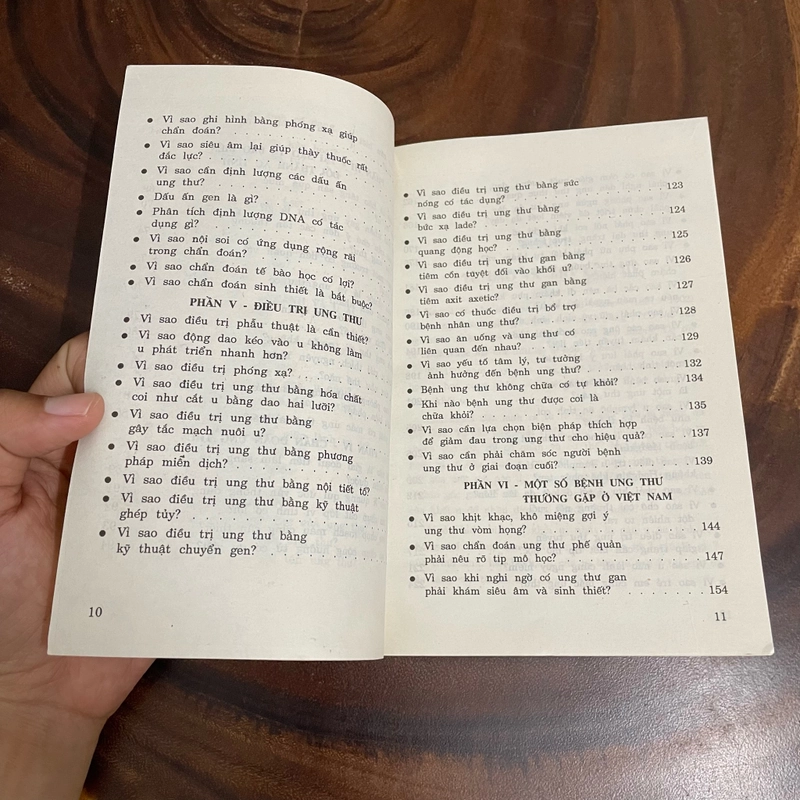 ● Vì sao ghi hình bằng phóng xạ giúp
chẩn đoán? . . . . . . . . . .
● Vì sao siêu âm lại giúp thày thuốc rất
đắc lực? . . . . . . . . . .
● Vì sao cần định lượng các dấu ấn
ung thư? . . . . . . . . . .
● Dấu ấn gen là gì? . . . . . . . . . .
● Phân tích định lượng DNA có tác
dụng gì? . . . . . . . . . .
● Vì sao nội soi có ứng dụng rộng rãi
trong chẩn đoán? . . . . . . . . . .
● Vì sao chẩn đoán tế bào học có lợi?
● Vì sao chẩn đoán sinh thiết là bắt buộc?
PHẦN V - ĐIỀU TRỊ UNG THƯ
● Vì sao điều trị phẫu thuật là cần thiết?
● Vì sao động dao kéo vào u không làm
u phát triển nhanh hơn? . . . . . . . .
● Vì sao điều trị phóng xạ? . . . . . . . .
● Vì sao điều trị ung thư bằng hóa chất
coi như cắt u bằng dao hai lưỡi? . . . .
● Vì sao điều trị ung thư bằng
gây tắc mạch nuôi u? . . . . . . . .
● Vì sao điều trị ung thư bằng phương
pháp miễn dịch? . . . . . . . . . .
● Vì sao điều trị ung thư bằng nội tiết tố?
● Vì sao điều trị ung thư bằng kỹ thuật
ghép tủy? . . . . . . . . . .
● Vì sao điều trị ung thư bằng
kỹ thuật chuyển gen? . . . . . . . .
10
● Vì sao điều trị ung thư bằng sức
nóng có tác dụng? . . . . . . . . . . 123
● Vì sao điều trị ung thư bằng
bức xạ lade? . . . . . . . . . . 124
● Vì sao điều trị ung thư bằng
quang động học? . . . . . . . . . . 125
● Vì sao điều trị ung thư gan bằng
tiêm cồn tuyệt đối vào khối u? . . . . . 126
● Vì sao điều trị ung thư gan bằng
tiêm axit axetic? . . . . . . . . . . 127
● Vì sao có thuốc điều trị bổ trợ
bệnh nhân ung thư? . . . . . . . . . . 128
● Vì sao ăn uống và ung thư có
liên quan đến nhau? . . . . . . . . . . 129
● Vì sao yếu tố tâm lý, tư tưởng
ảnh hưởng đến bệnh ung thư? . . . . . 132
● Bệnh ung thư không chữa có tự khỏi? . . . 134
● Khi nào bệnh ung thư được coi là
chữa khỏi? . . . . . . . . . . 135
● Vì sao cần lựa chọn biện pháp thích hợp
để giảm đau trong ung thư cho hiệu quả? . . 137
● Vì sao cần phải chăm sóc người bệnh
ung thư ở giai đoạn cuối? . . . . . . . 139
PHẦN VI - MỘT SỐ BỆNH UNG THƯ
THƯỜNG GẶP Ở VIỆT NAM
● Vì sao khịt khạc, khô miệng gợi ý
ung thư vòm họng? . . . . . . . . . . 144
● Vì sao chẩn đoán ung thư phế quản
phải nêu rõ típ mô học? . . . . . . . . 147
● Vì sao khi nghi ngờ có ung thư gan
phải khám siêu âm và sinh thiết? . . . . 154
11